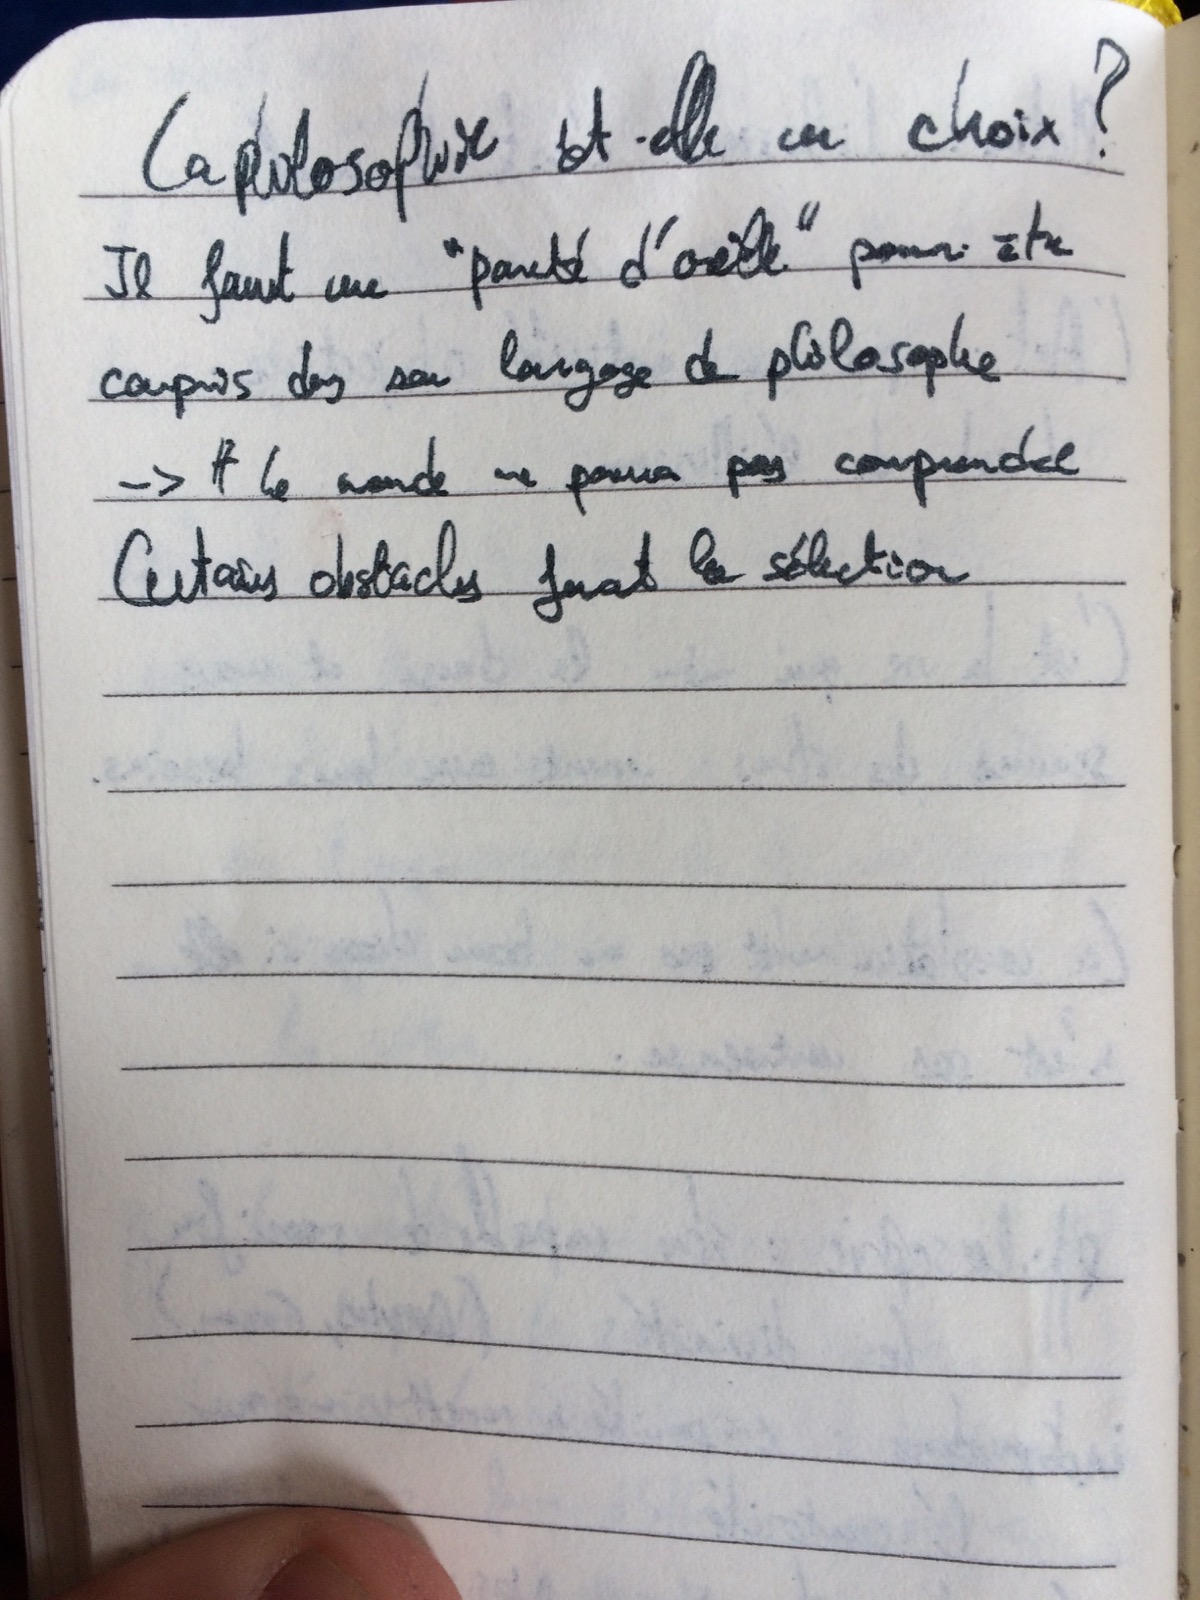 La philosophie est-elle un choix ?
Il faut une "parenté d'oreille" pour être
compris dans son langage de philosophe
-> tt le monde ne pourra pas comprendre
Certains obstacles font la sélection